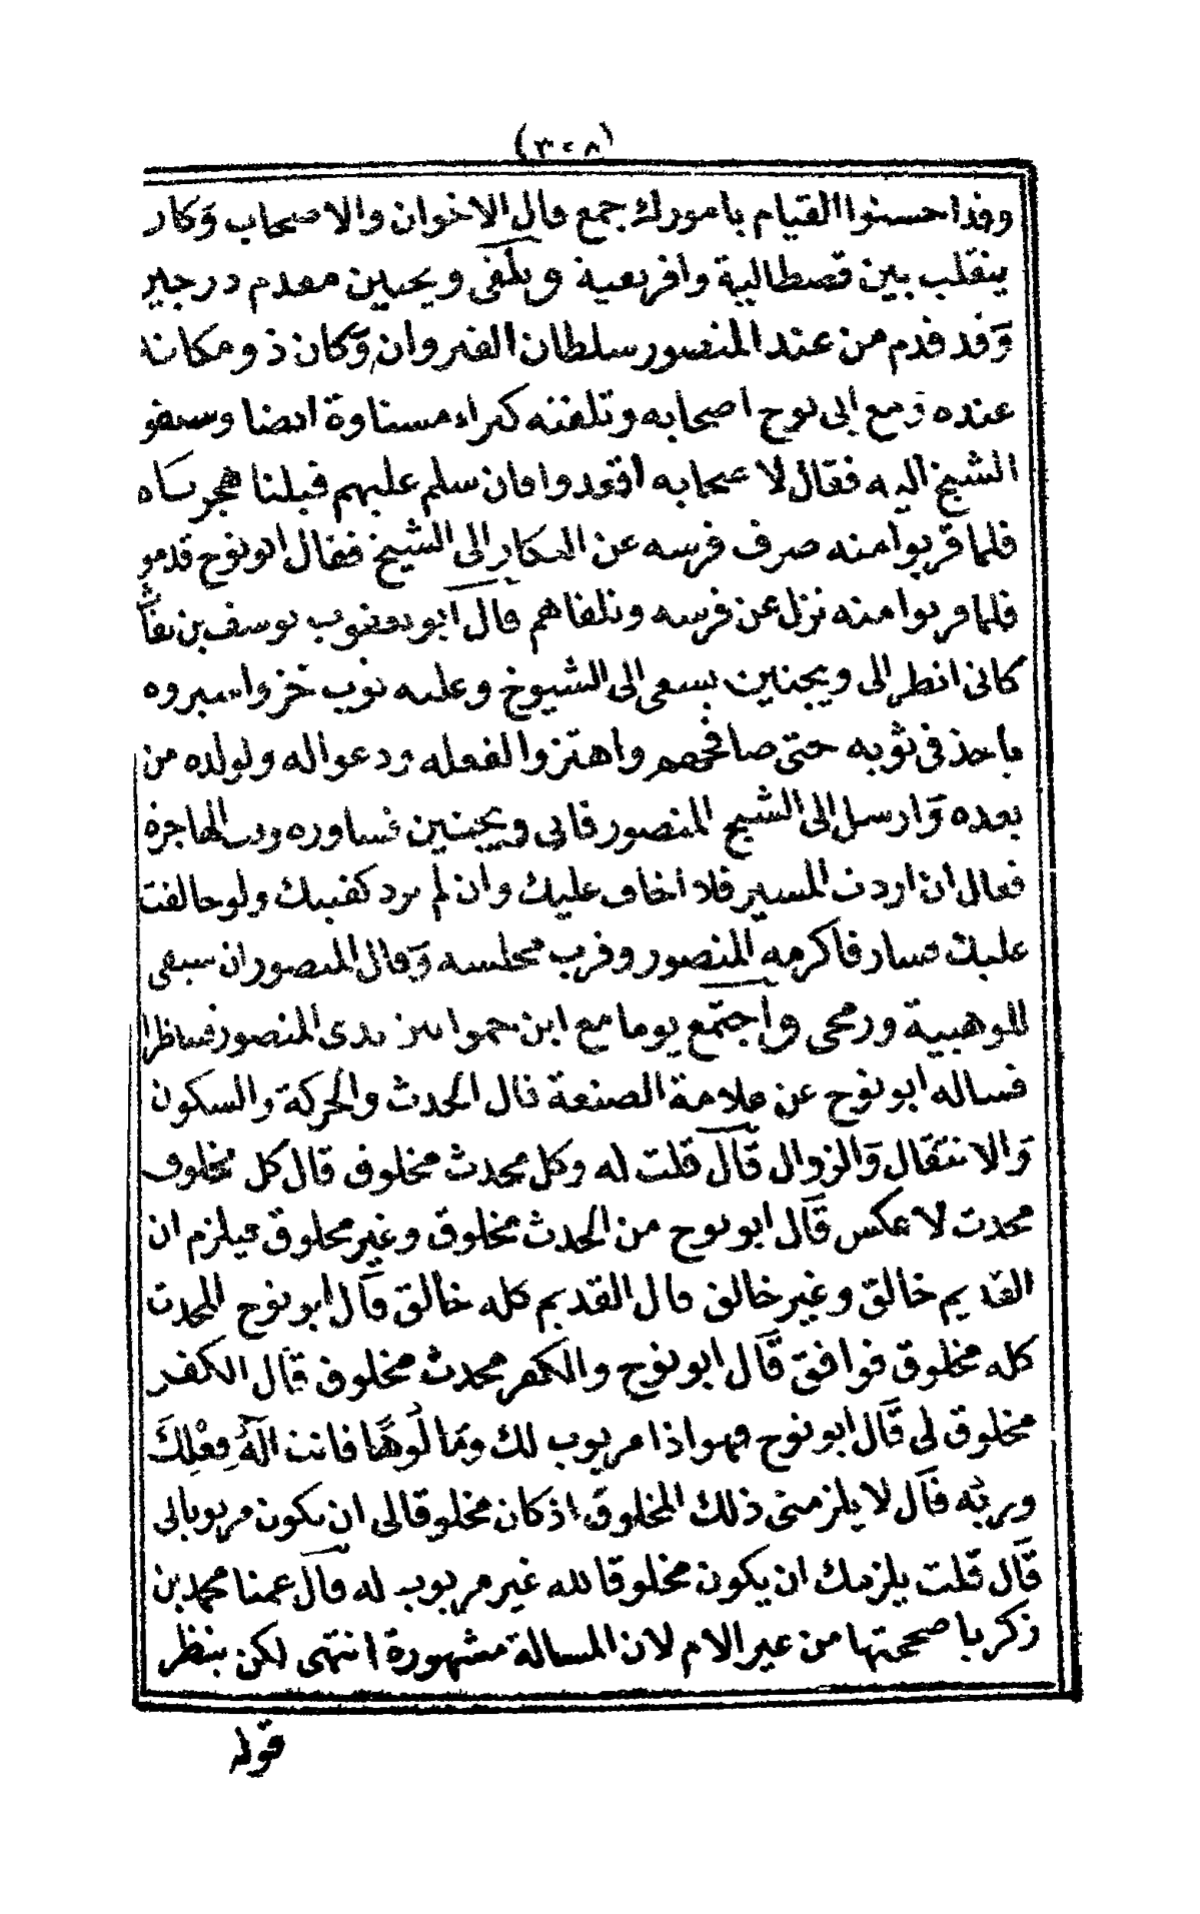 (٣٠٨)
وقد احسنوا القيام بامورك جمع قال الاخوان والاصحاب وكان
ينقلب بين قصطالية وافريقية وتلقى ويجنين مقدم درجين
وقد قدم من عند المنصور سلطان القيروان وكان ذو مكانة
عنده ومع ابى نوح اصحابه وتلقته كبراء مسناوة ايضا وسبقو
الشيخ اليه فقال لاصحابه اقعدوا فان سلم عليهم قبلنا هجرناه
فلما قربوا منه صرف فرسه عن الى الشيخ فقال ابو نوح قدمو
فلما قربوا منه نزل عن فرسه وتلقاهم قال ابو يعقوب يوسف بن نفاث
كانى انظر الى ويجنين يسعى الى الشيوخ وعليه ثوب خز واسيروه
ياخذ فى ثوبه حتى صافحهم واهتزوا لفعله ودعوا له ولولده من
بعده وارسل الى الشيخ المنصور فاتى ويجنين فساوره وبه الهاجرة
فقال ان اردت المسير فلا اخاف عليك وان لم ترد كفيتك ولو حالفت
عليك فسار فاكرمه المنصور وقرب مجلسه وقال المنصور ان سيفى
للوهبية ورمحى واجتمع يوما مع ابن حموا بين يدى المنصور فتناظرا
فساله ابو نوح عن علامة الصنعة قال الحدث والحركة والسكون
والانتقال والزوال قال قلت له وكل محدث مخلوق قال كل مخلوق
محدث لا عكس قال ابو نوح من الحدث مخلوق وغير مخلوق فيلزم ان
القديم خالق وغير خالق قال القديم كله خالق قال ابو نوح المحدث
كله مخلوق فوافق قال ابو نوح والكفر محدث مخلوق قال الكفر
مخلوق لى قال ابو نوح فهو اذا مربوب لك ومالوها فانت اله فعلك
وربه قال لا يلزمنى ذلك المخلوق اذ كان مخلوقا لى ان يكون مربوبا لى
قال قلت يلزمك ان يكون مخلوقا لله غير مربوب له قال عمنا محمد بن
زكريا صححتها من غير الام لان المسالة مشهورة انتهى لكن ينظر
قوله